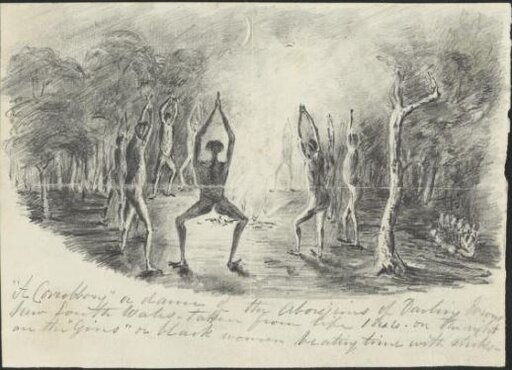 "A Corrobbory" or dance of the Aborigins of Darling Downs
New South Wales. taken from life 1844. on the right
are the "Gins" or black women beating time with sticks